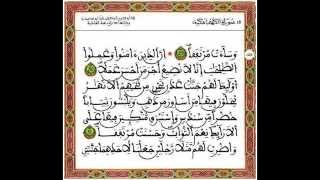 18 سورة الكهف مكية
وَسَآءَتْ مُرْتَفَقاً إِنَّ ٱلذِينَ ءَامَنُواْ وَعَمِلُواْ
ٱلصَّٰلِحَٰتِ إِنَّا لَا نُضِيعُ أَجْرَ مَنَ اَحْسَنَ عَمَلاً
أُوْلَٰٓئِكَ لَهُمْ جَنَّٰتُ عَدْنٍ تَجْرِے مِن تَحْتِهِمُ ٱلَانْهَٰرُ
يُحَلَّوْنَ فِيهَا مِنَ اَسَاوِرَ مِن ذَهَبٍ وَيَلْبَسُونَ ثِيَاباً
خُضْراً مِّن سُندُسٍ وَإِسْتَبْرَقٍ مُّتَّكِـِٕينَ فِيهَا عَلَى
ٱلَارَآئِكِ نِعْمَ ٱلثَّوَابُ وَحَسُنَتْ مُرْتَفَقاً
وَاضْرِبْ لَهُم مَّثَلاً رَّجُلَيْنِ جَعَلْنَا لِأَحَدِهِمَا جَنَّتَيْنِ